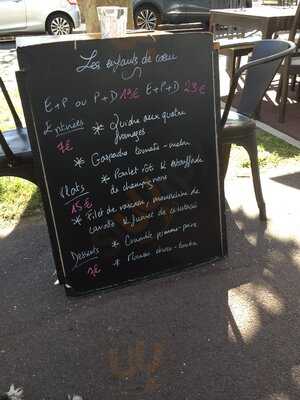 Les enfants de cœur
E+P ou P+D 19€ E+P+D 23€
Entrées
* Quiche aux quatre
fromages
7€
* Gaspacho tomate-melon
Plats
* Poulet rôti &
de champignons
15€
* Filet de mousseline de
carotte &
Desserts
* Crumble pomme-poire
7€
* choco-